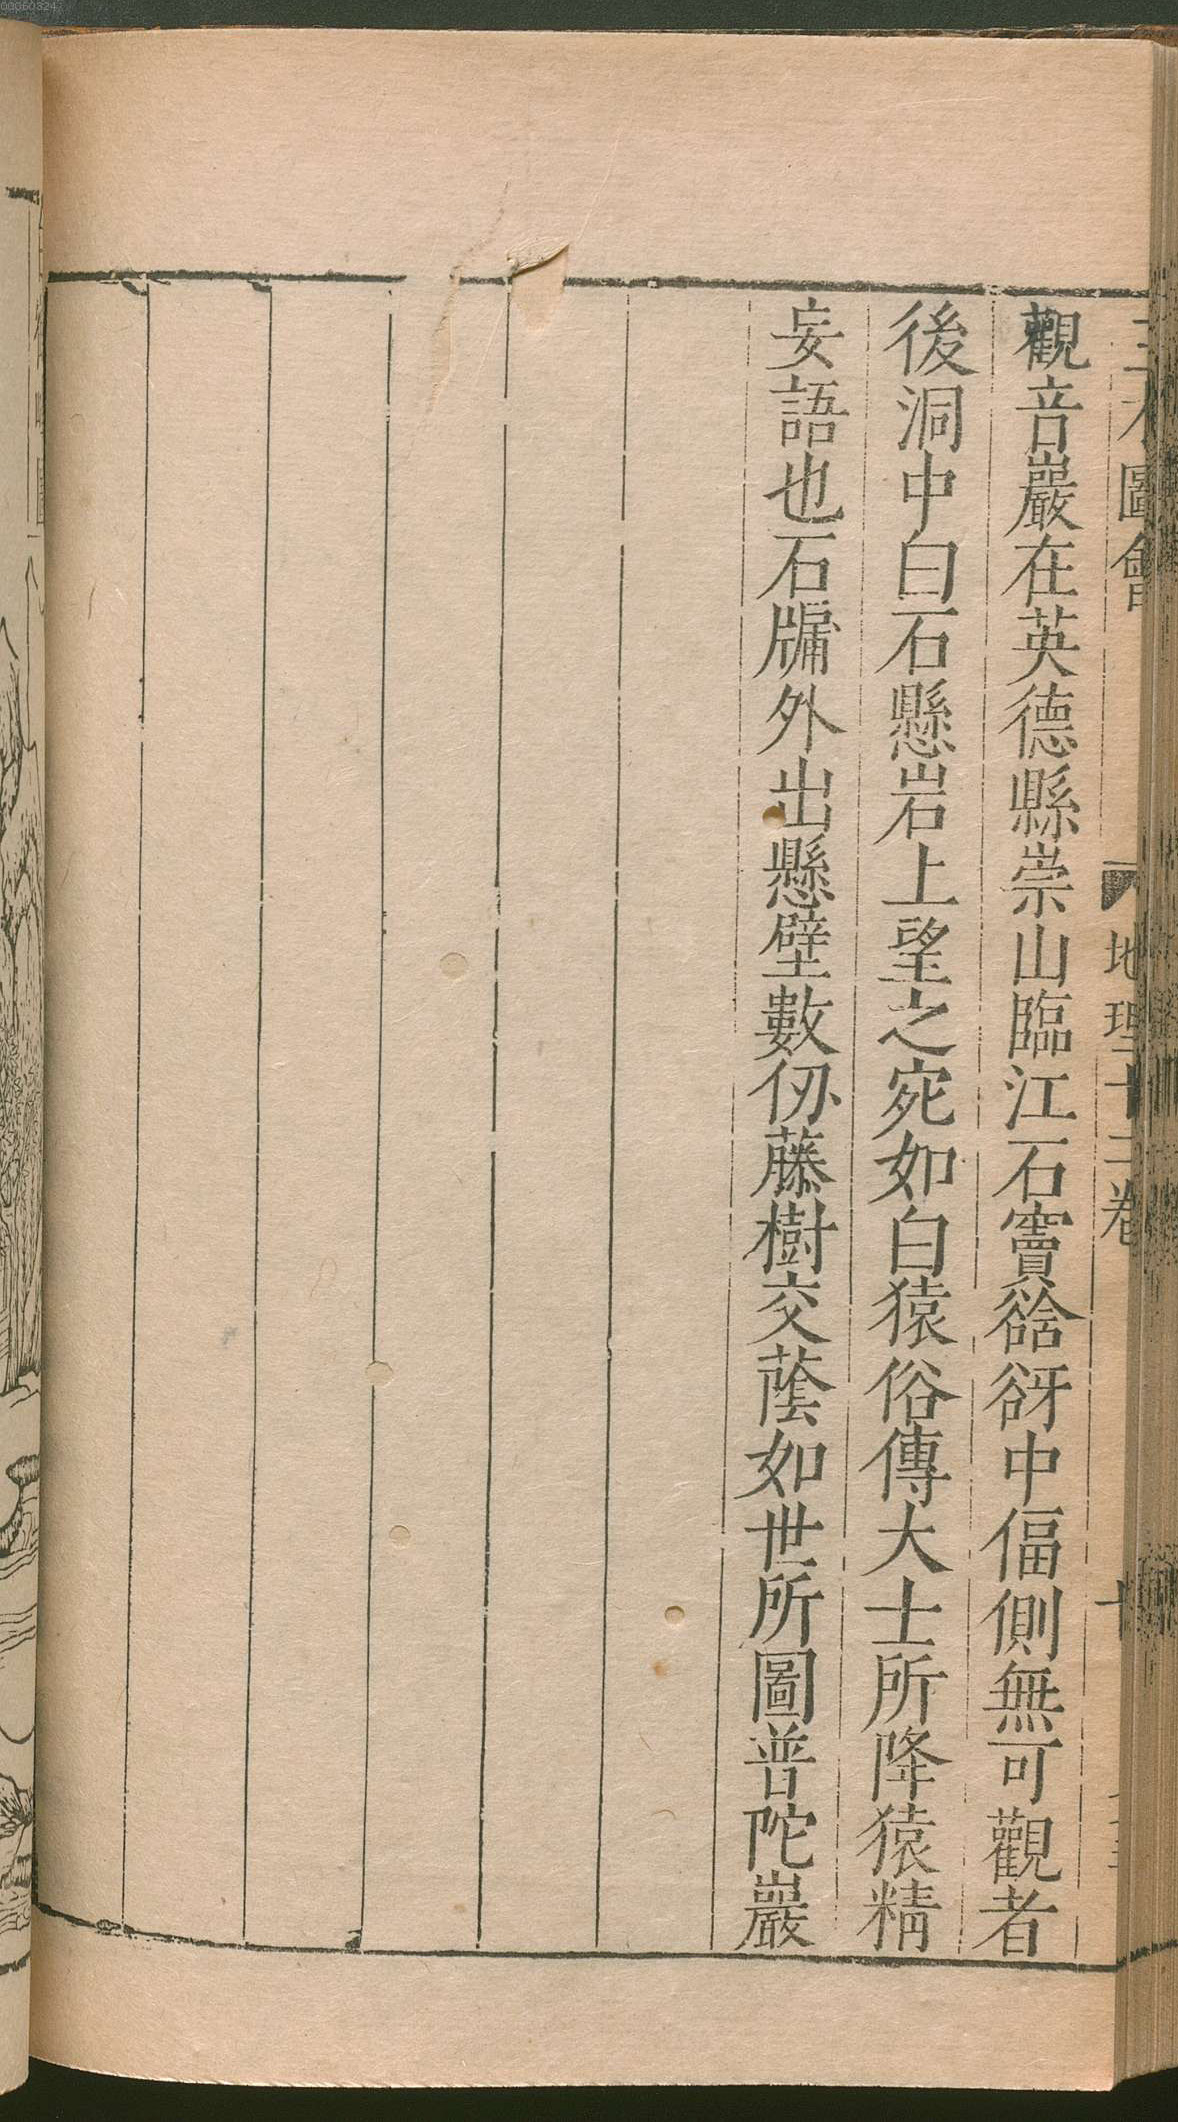 圖會 地理十二卷
觀音巖在英德縣崇山臨江石竇谽谺中偪側無可觀者
後洞中白石懸岩上望之宛如白猿俗傳大士所降猿精
妄語也石牖外出懸壁數仭藤樹交蔭如世所圖普陀巖
00060324